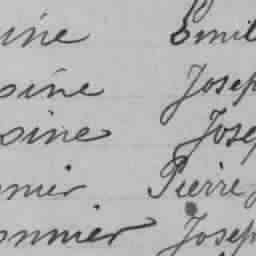 ine Emil
sine Josep
sine Jose
nier Pierre
onnier Josep